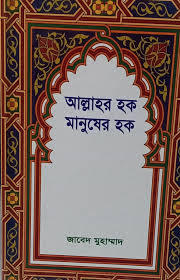 আল্লাহর হক
মানুষের হক
জাবেদ মুহাম্মাদ